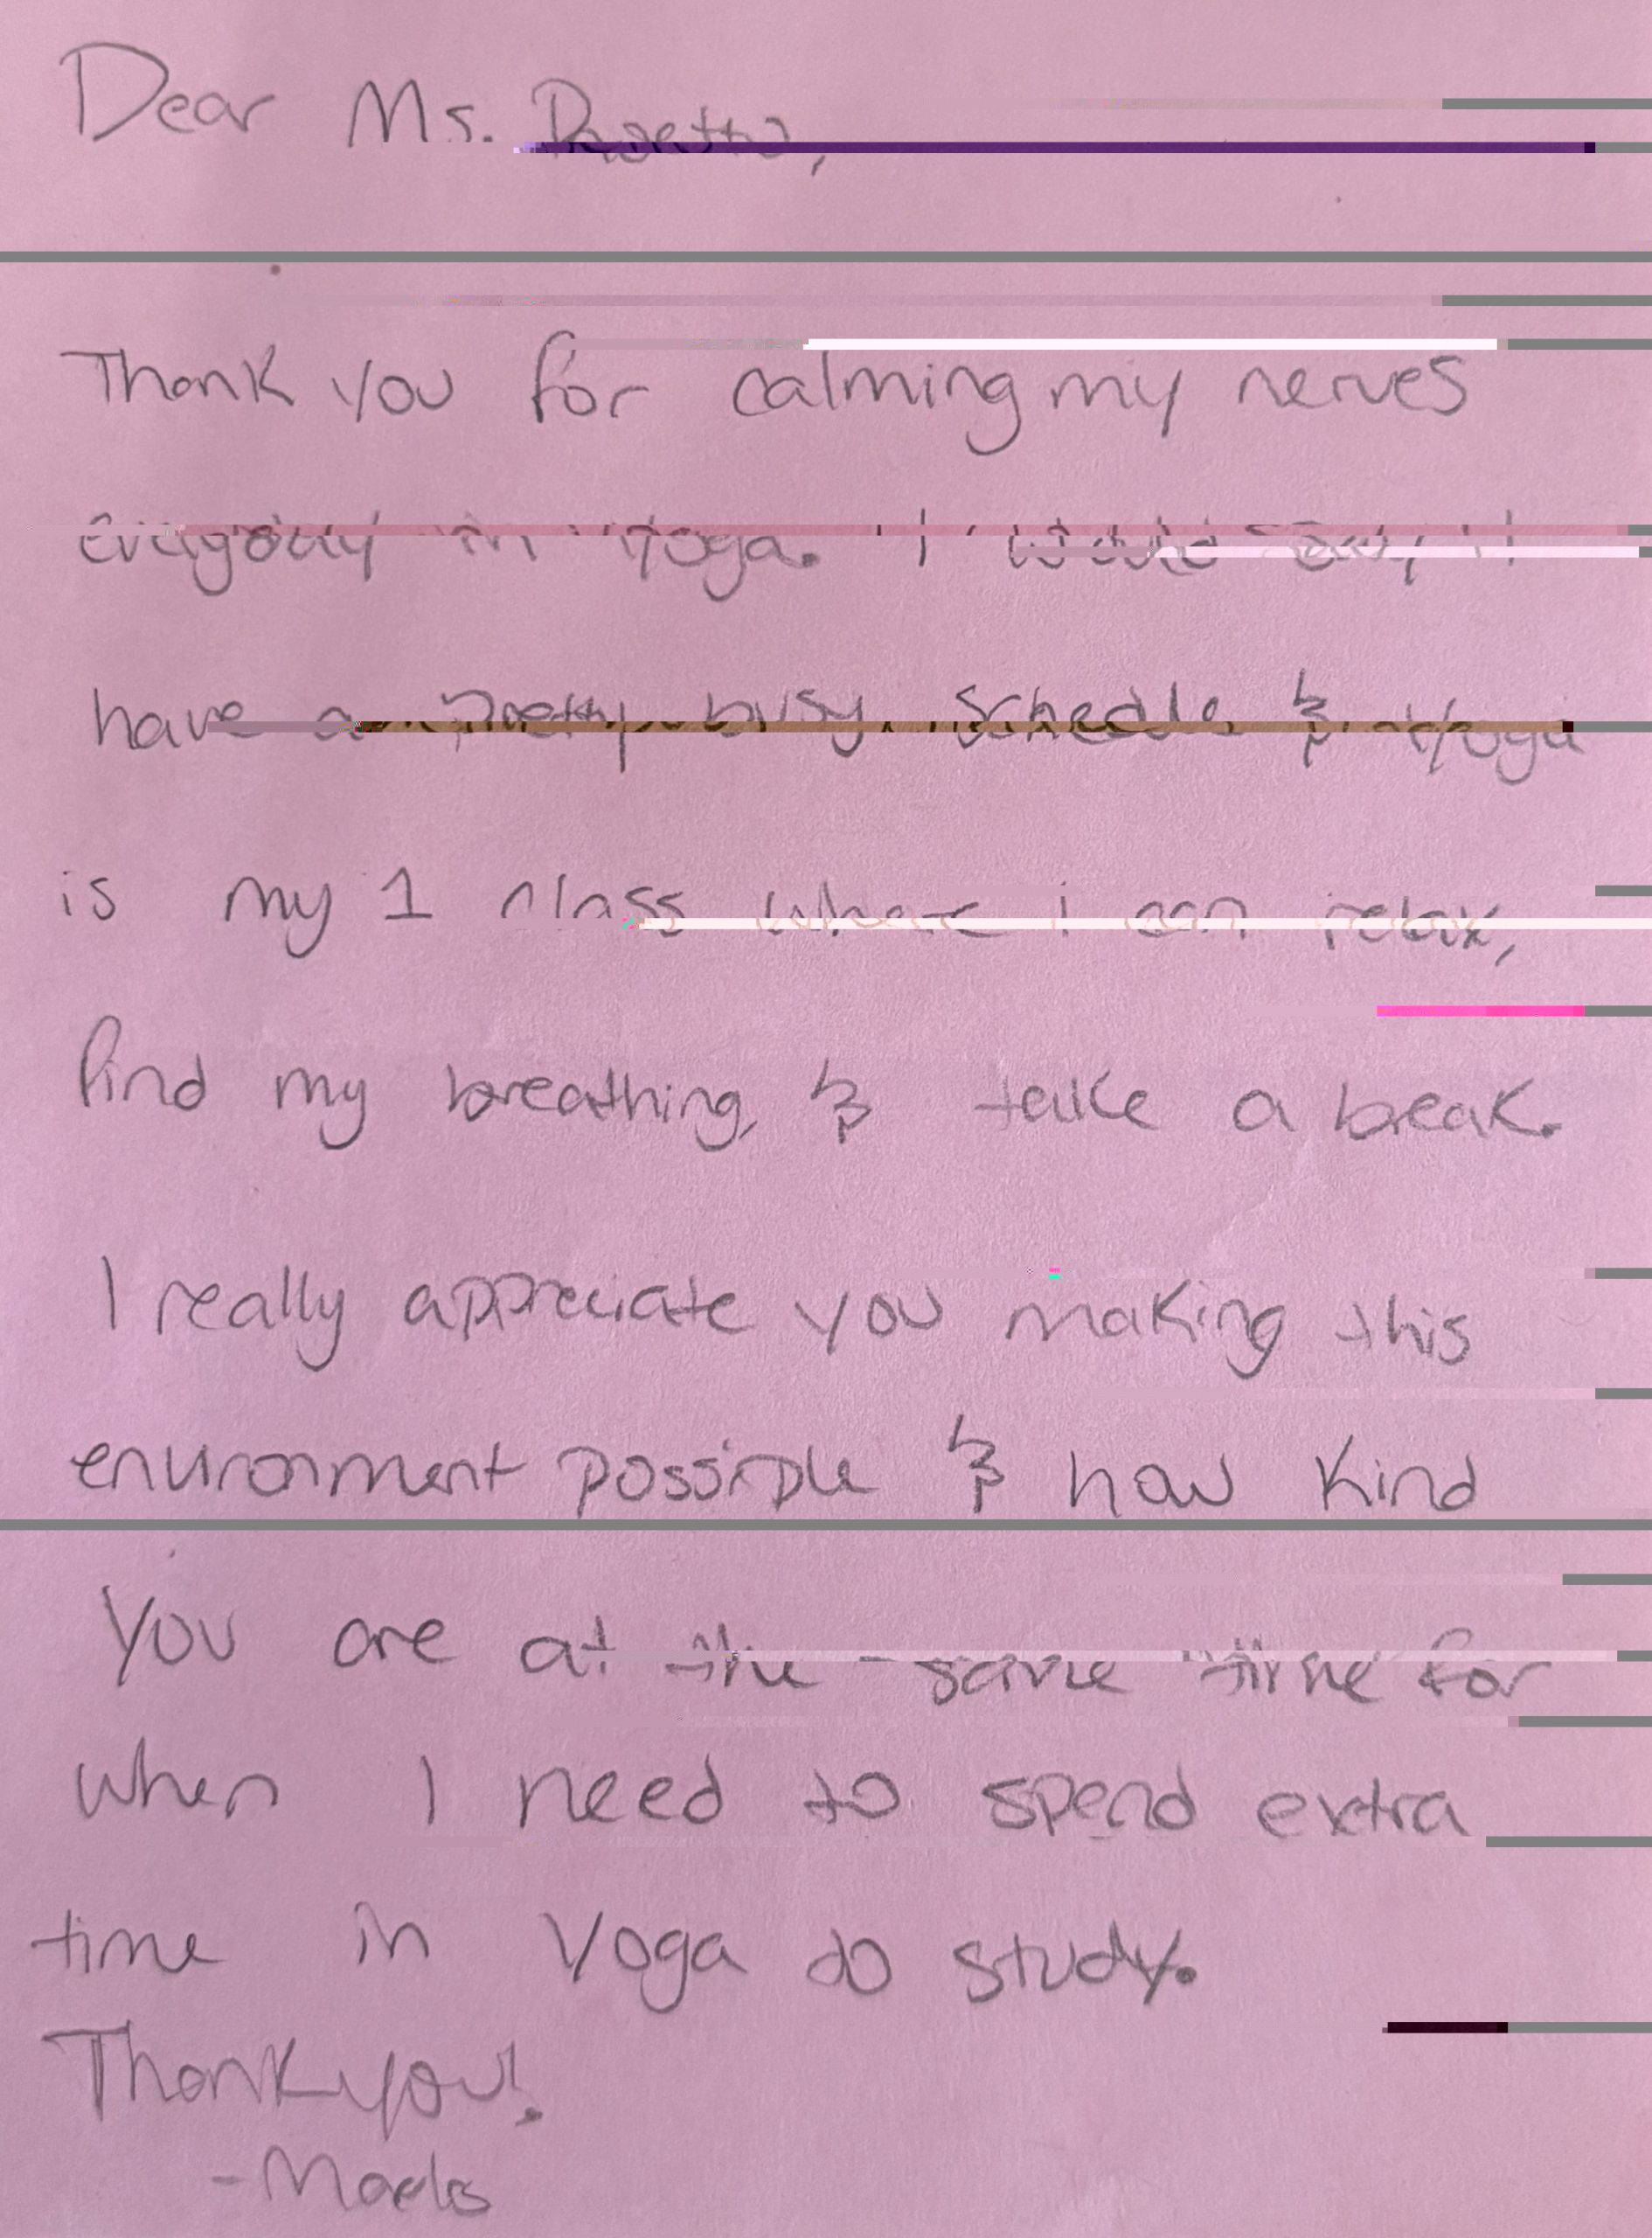 Dear Ms.
Thank you for calming my nerves
everyday in Yoga. I would say I
have a pretty busy schedle & Yoga
is my 1 class where I can relax,
find my breathing, & take a break.
I really appreciate you making this
environment possible & how kind
you are at the same time for
when I need to spend extra
time in Yoga to study.
Thank you!